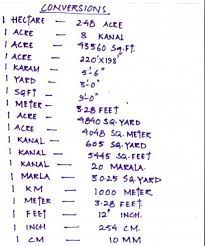 CONVERSIONS.
1 HECTARE - 2.48 ACRE
1 ACRE - 8 KANAL
1 ACRE - 43560 SQ.FT.
1 ACRE - 220'X198'
1 KARAM - 5'-6"
1 YARD - 3'-0"
1 SQFT - 9'-0"
1 METER - 3.28 FEET
1 ACRE - 4840 SQ.YARD
1 ACRE - 4048 SQ.METER
1 KANAL - 605 SQ.YARD
1 KANAL - 5445 SQ.FEET
1 KANAL - 20 MARALA.
1 MARLA - 30.25 SQ.YARD
1 KM - 1000 METER
1 METER - 3.28 FEET
1 FEET - 12" INCH.
1 INCH - 2.54 CM.
1 CM - 10 MM